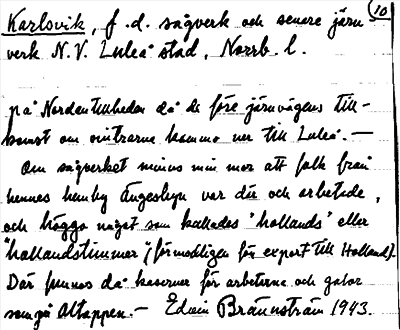 10
Karlsvik, f.d. sågverk och senare järn-
verk N.V. Luleå stad, Norrb. l.
på Nordantillheden då de före järnvägens till-
komst om vintrarna kommo ner till Luleå. —
Om sågverket minns min mor att folk från
hennes hemby Ängesbyn var där och arbetade,
och höggo något som kallades "hollands" eller
"hollandstimmer" (förmodligen för export till Holland).
Där funnos då kaserner för arbetarne och gator
som på Altappen. — Edvin Brännström 1943.